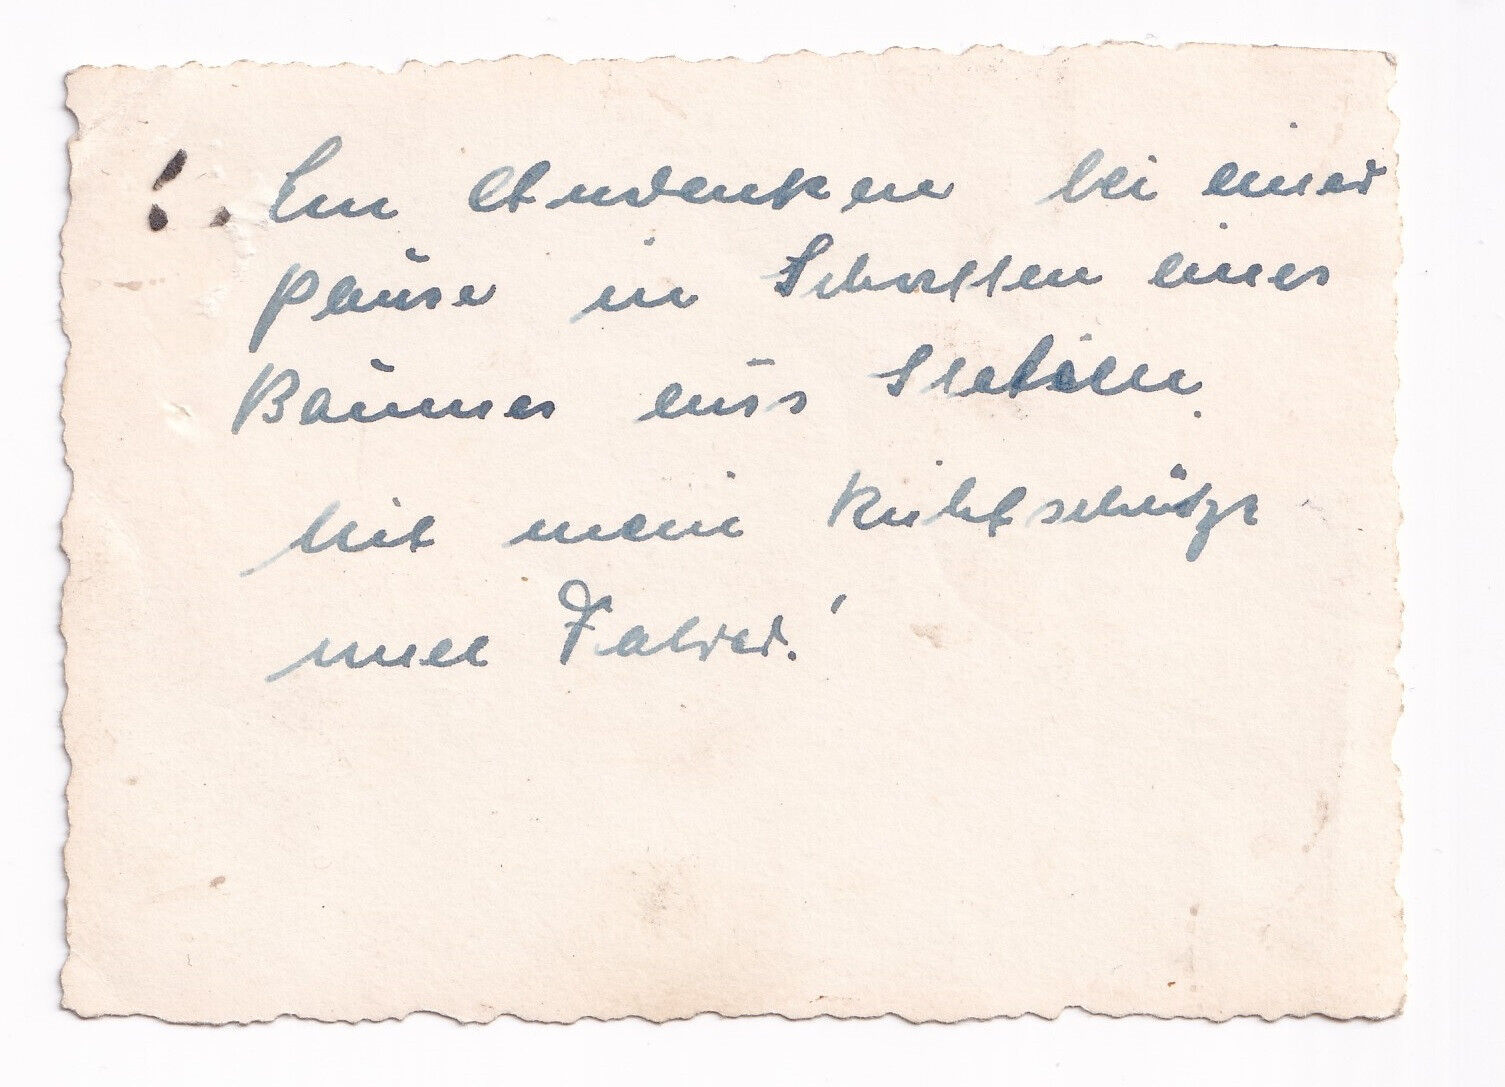 ! Ein Andenken bei einer
Pause in Schatten eines
Baumes aus
Mit mein Richtschütze
und Fahrer!